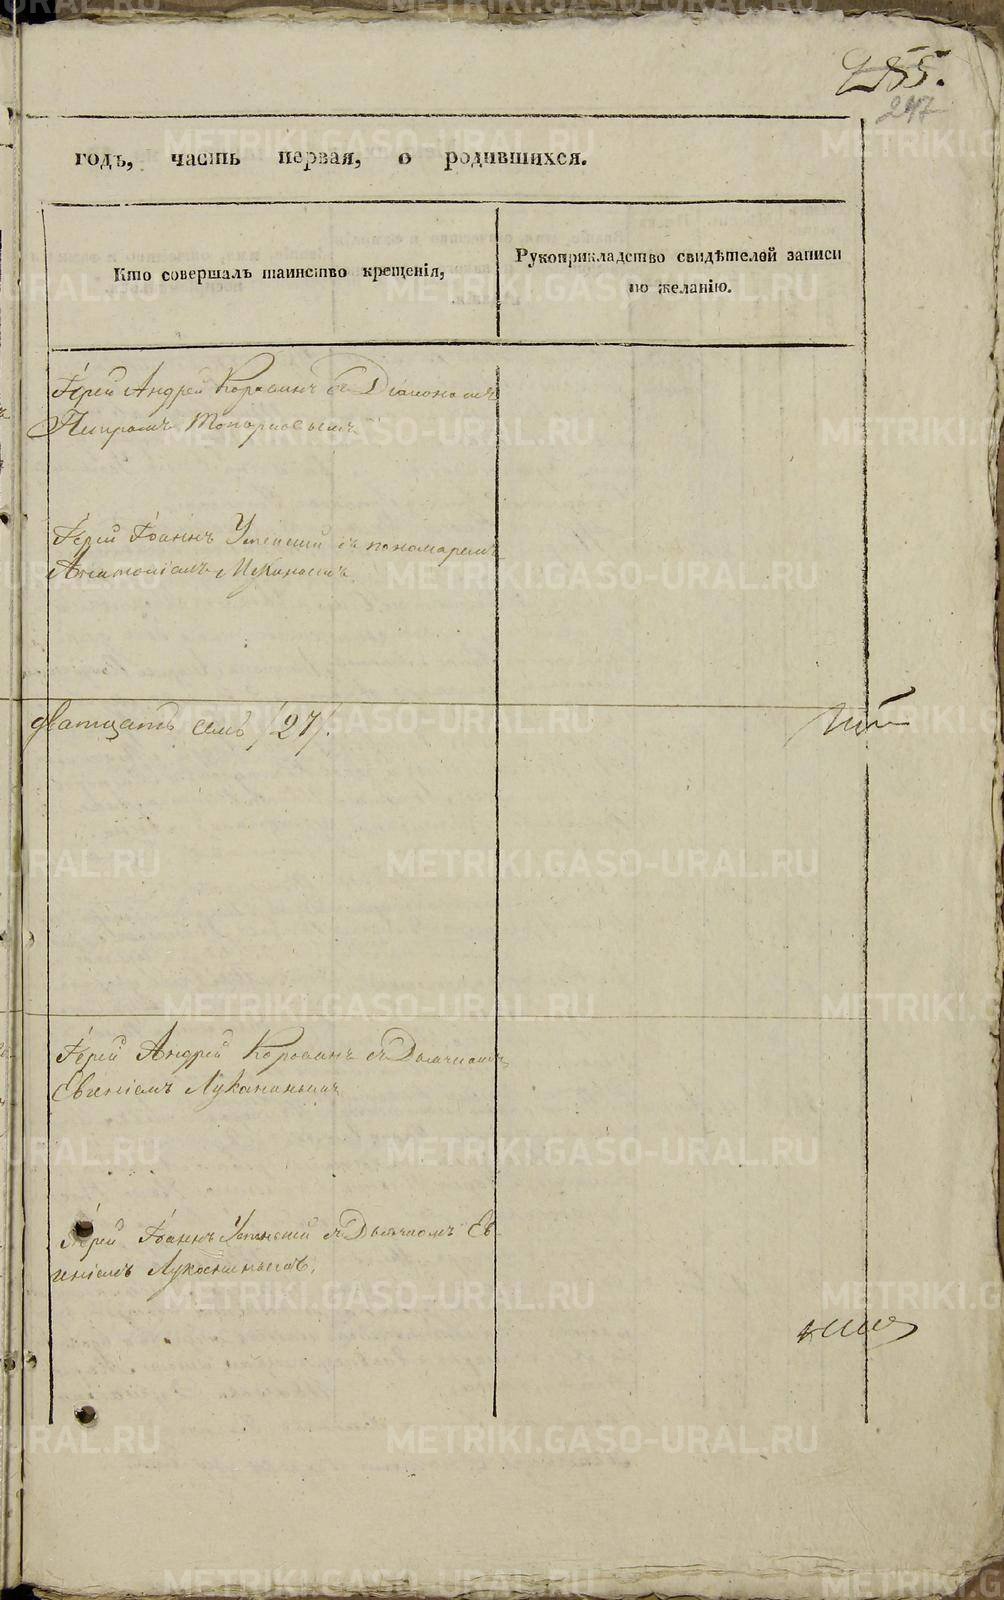 255.
247
годъ, часть первая, о родившихся.
Кто совершалъ таинство крещенія,
Рукоприкладство свидѣтелей записи
по желанію.
Іерей Андрей Коровинъ съ Діакономъ
Петромъ Топорковымъ
Іерей Іоаннъ Успенский съ пономаремъ
дватцать семь /27/.
Іерей Андрей Коровинъ съ Дьячкомъ
Евгеніемъ Луканинымъ
Іерей Іоаннъ Успенский съ Дьячкомъ Ев-
геніемъ Луканинымъ.
METRIKI.GASO-URAL.RU